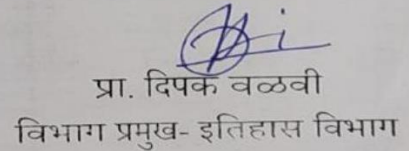 प्रा. दिपक वळवी
विभाग प्रमुख- इतिहास विभाग